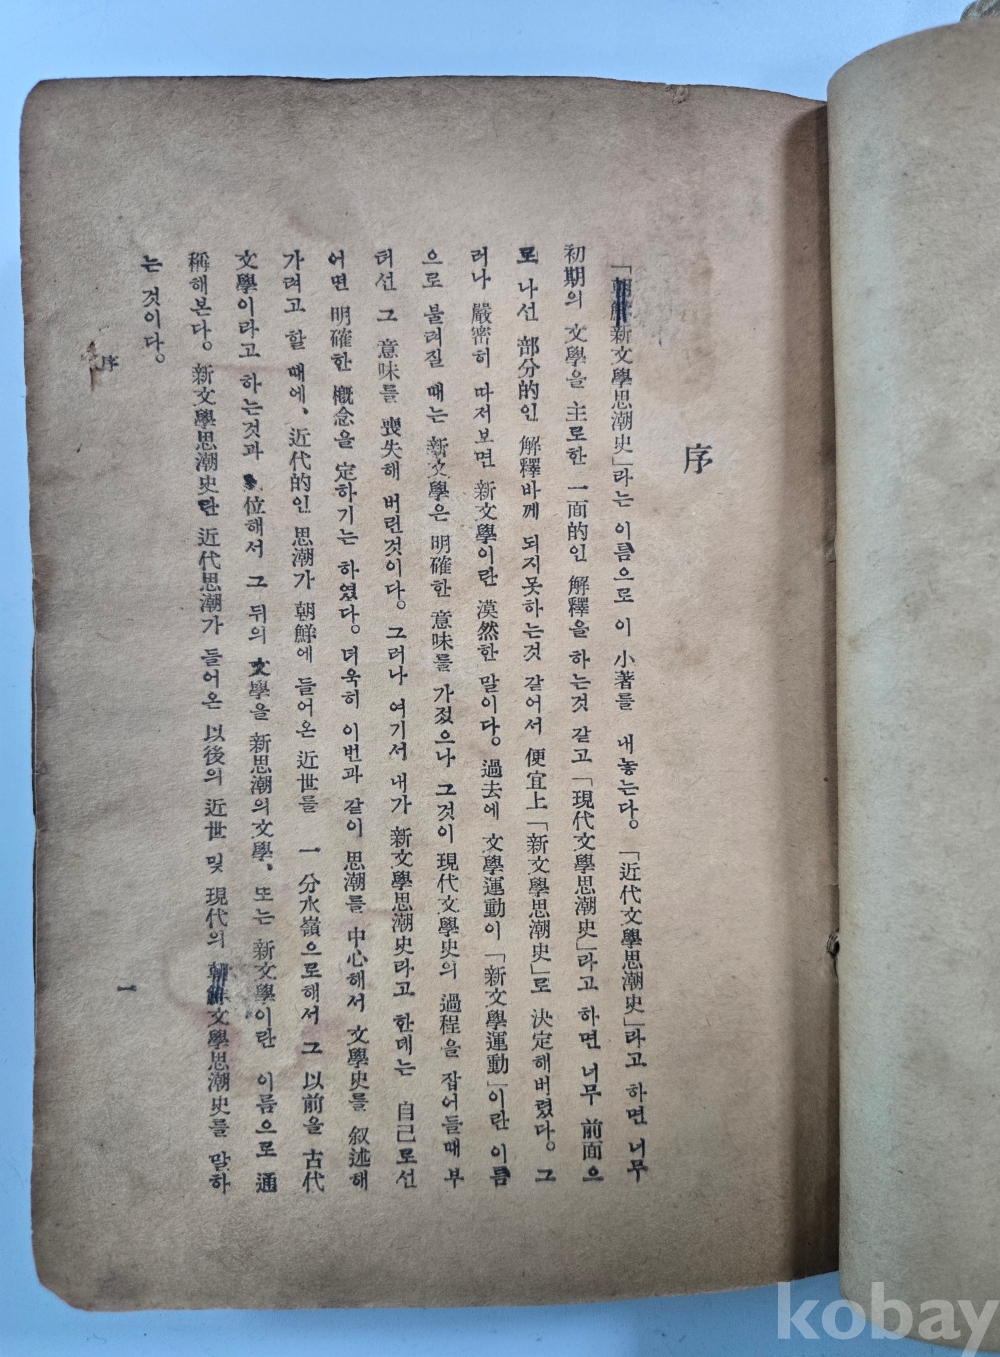 序
「朝鮮新文學思潮史」라는 이름으로 이 小著를 내놓는다。「近代文學思潮史」라고 하면 너무
初期의 文學을 主로한 一面的인 解釋을 하는것 같고「現代文學思潮史」라고 하면 너무 前面으
로 나선 部分的인 解釋바께 되지못하는것 같어서 便宜上「新文學思潮史」로 決定해버렸다。그
러나 嚴密히 따저보면 新文學이란 漠然한 말이다。過去에 文學運動이「新文學運動」이란 이름
으로 불려질 때는 新文學은 明確한 意味를 가졌으나 그것이 現代文學史의 過程을 잡어들때 부
터선 그 意味를 喪失해 버린것이다。그러나 여기서 내가 新文學思潮史라고 한데는 自己로선
어면 明確한 槪念을 定하기는 하였다。더욱히 이번과 같이 思潮를 中心해서 文學史를 叙述해
가려고 할 때에、近代的인 思潮가 朝鮮에 들어온 近世를 一分水嶺으로해서 그 以前을 古代
文學이라고 하는것과 位해서 그 뒤의 文學을 新思潮의文學、또는 新文學이란 이름으로 通
稱해본다。新文學思潮史란 近代思潮가 들어온 以後의 近世 및 現代의 朝鮮文學思潮史를 말하
는 것이다。
序
一
kobay